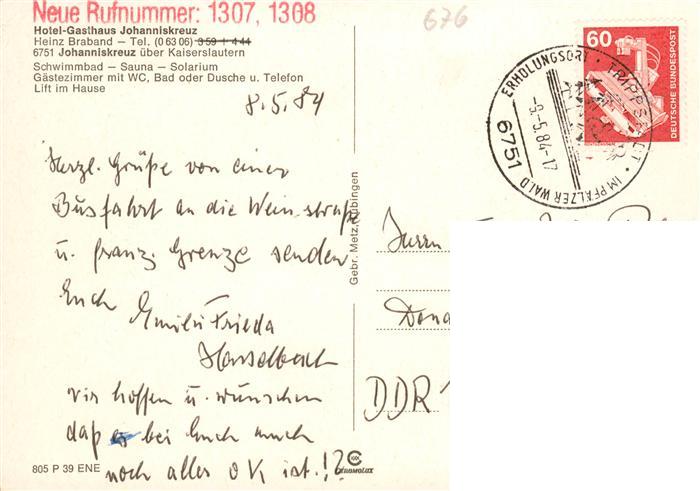 Neue Rufnummer: 1307, 1308
Hotel-Gasthaus Johanniskreuz
Heinz Braband – Tel. (0 63 06) 3 59 + 4 44
6751 Johanniskreuz über Kaiserslautern
Schwimmbad – Sauna – Solarium
Gästezimmer mit WC, Bad oder Dusche u. Telefon
Lift im Hause
8.5.84
Herzl. Grüße von einer
Busfahrt an die Weinstraße
u. franz. Grenze senden
Euch
Frieda
wir hoffen u. wünschen
daß es bei Euch auch
noch alles OK ist.!?
805 P 39 ENE
Gebr. Metz, Tübingen
CHROMOLUX
676
60
DEUTSCHE BUNDESPOST
ERHOLUNGSORT · TRIPPSTADT · IM PFÄLZER WALD
-9.-5.84-17
6751
Herrn
Dona
DDR